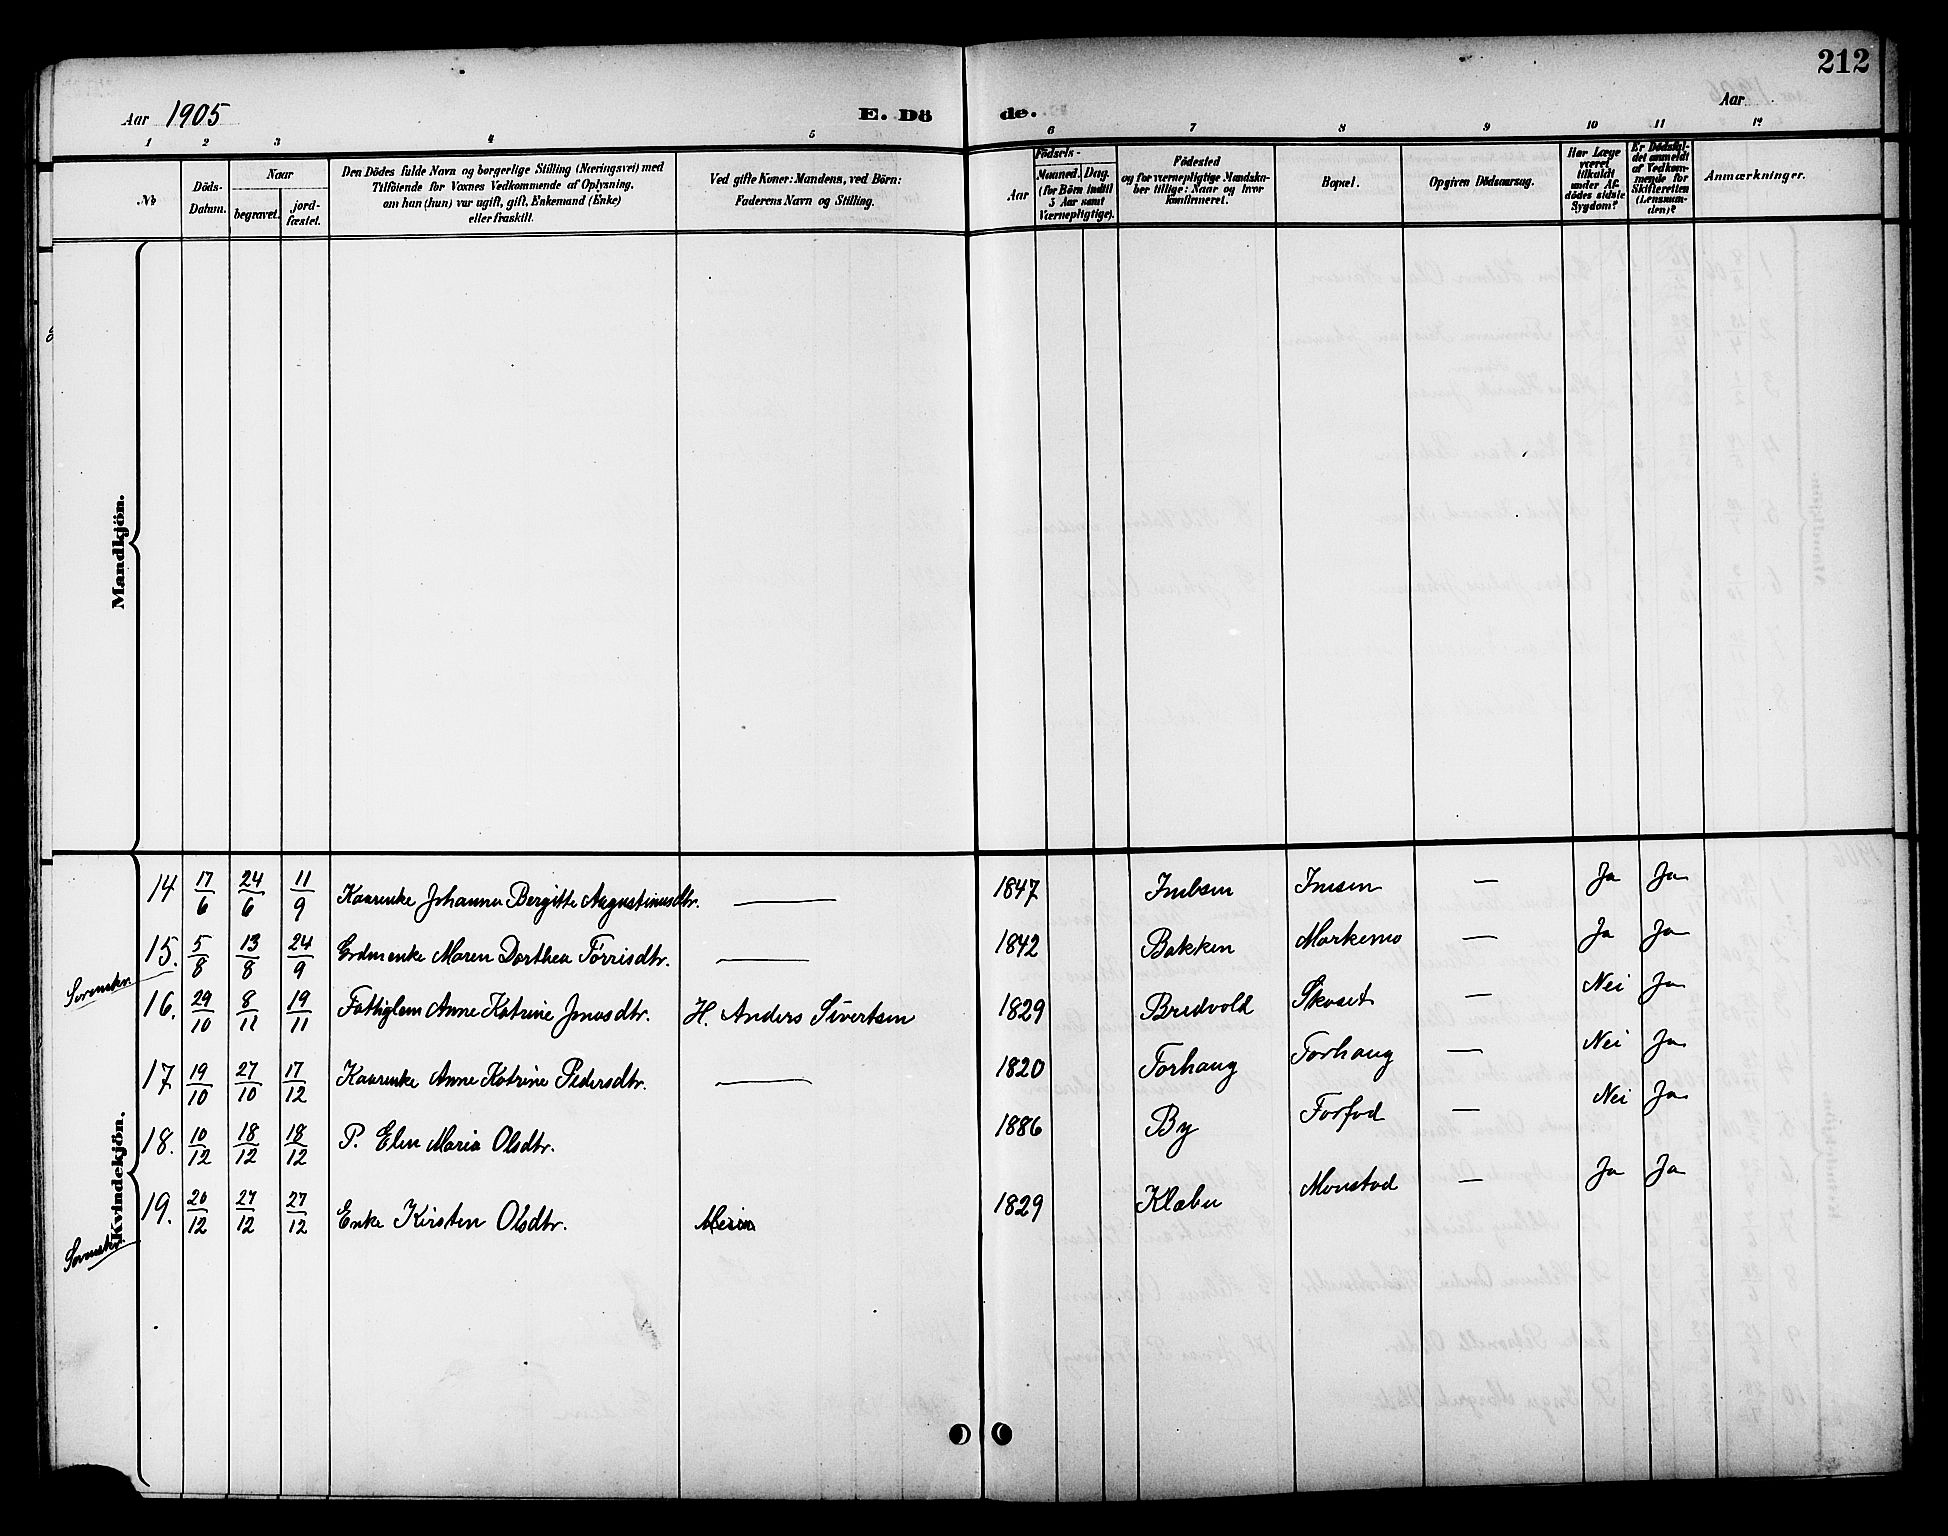 212
Aar 1905 E. Dö de. Aar
1 2 3 4 5 6 7 8 9 10 11 12
No
Döds-Datum.
Naar
begravet.
jord-fæstet.
Den Dödes fulde Navn og borgerlige Stilling (Næringsvei) med
Tilföiende for Voxnes Vedkommende af Oplysning,
om han (hun) var ugift, gift, Enkemand (Enke)
eller fraskilt.
Ved gifte Koner: Mandens, ved Börn:
Faderens Navn og Stilling.
Födsels-
Aar
Maaned. Dag.
(for Börn indtil
5 Aar samt
Værnepligtige).
Födested
og for værnepligtige Mandska-
ber tillige: Naar og hvor
konfirmeret.
Bopæl.
Opgiven Dödsaarsag.
Har Læge
været
tilkaldt
under Af-
dödes sidste
Sygdom?
Er Dödsfal-
det anmeldt
af Vedkom-
mende for
Skifteretten
(Lensman-
den)?
Anmærkninger.
Mandkjön.
Kvindekjön.
14 17/6 24/6 11/9 Kaarenke Johanna Bergitte Augustinusdtr. — 1847 Imsen — Ja Ja
15. 5/8 13/8 24/9 Grdmenke Maren Dorthea Törrisdtr. — 1842 Bakken Markemo — Ja Ja
16. 29/10 8/11 19/11 Fattiglem Anne Katrine Jonasdtr. H. Anders Sivertsen 1829 Bredvold Skaset — Nei Ja
17 19/10 27/10 17/12 Kaarenke Anne Katrine Pedersdtr. — 1820 Forhaug Forhaug — Nei Ja
18. 10/12 18/12 18/12 P. Elen Maria Olsdtr. 1886 By Forfod — Nei Ja
19. 20/12 27/12 27/12 Enke Kirsten Olsdtr. 1829 Klæbu Monstad — Ja Ja